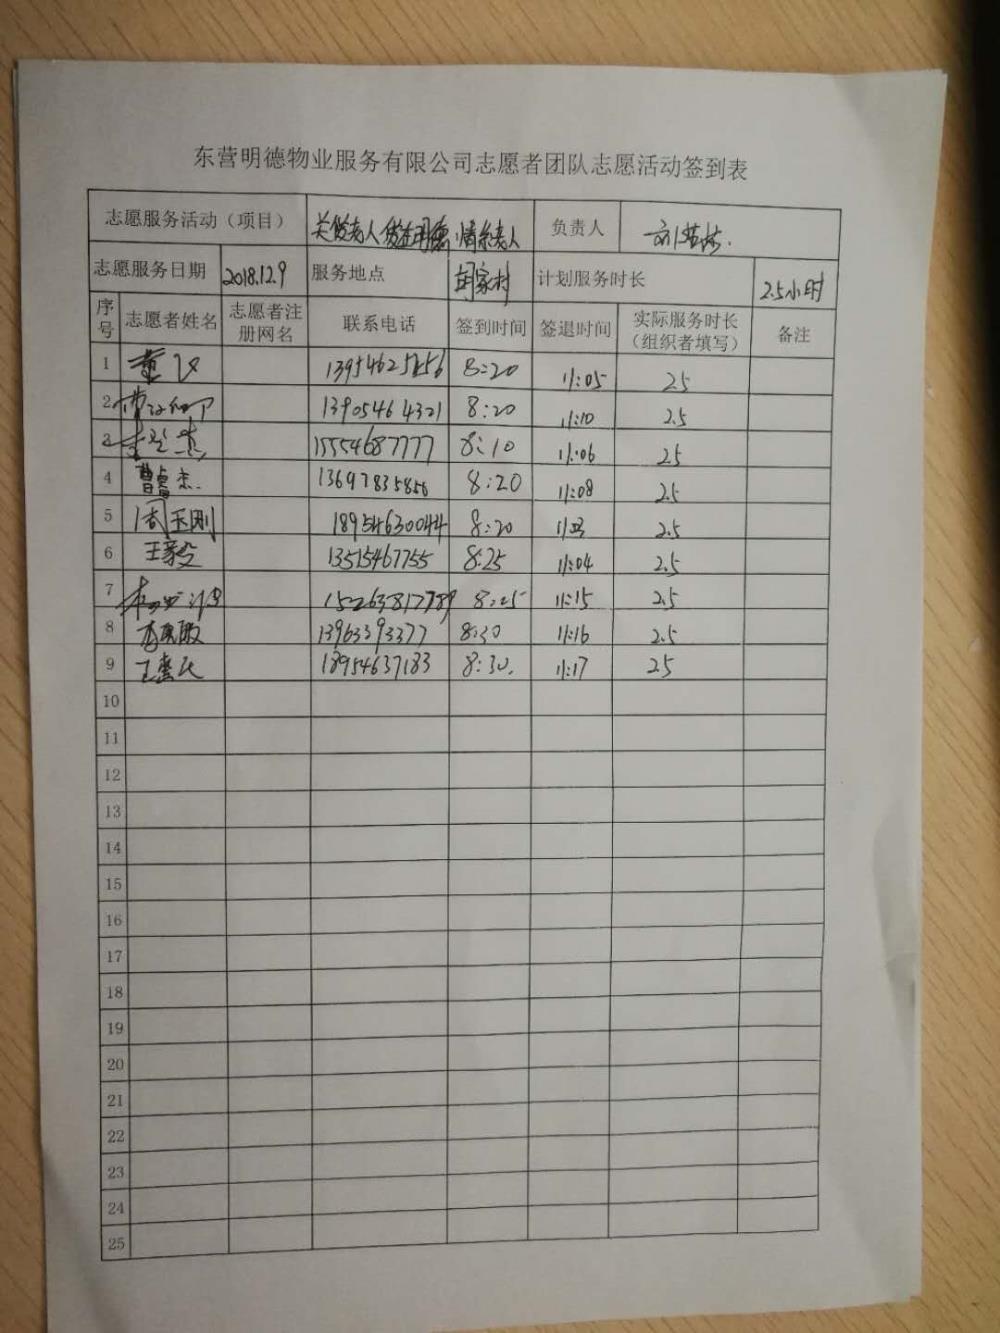 东营明德物业服务有限公司志愿者团队志愿活动签到表
志愿服务活动（项目） 关爱老人 爱在明德 情系老人 负责人
志愿服务日期 2018.12.9 服务地点 胡家村 计划服务时长 2.5小时
序号 志愿者姓名 志愿者注册网名 联系电话 签到时间 签退时间 实际服务时长（组织者填写） 备注
1 董 8:20 11:05 2.5
2 13905464321 8:20 11:10 2.5
3 15554687777 8:10 11:06 2.5
4 曹 杰 13697835856 8:20 11:08 2.5
5 周玉刚 18954630044 8:20 2.5
6 王毅 13515467755 8:25 11:04 2.5
7 15263812789 8:25 11:15 2.5
8 13963393377 8:30 11:16 2.5
9 王 18954637183 8:30. 11:17 2.5
10
11
12
13
14
15
16
17
18
19
20
21
22
23
24
25